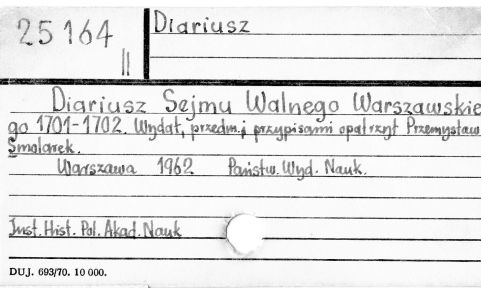 25164
II
Diariusz
Diariusz Sejmu Walnego Warszawskie
go 1701-1702. Wydał, przedm. i przypisami opatrzył Przemysław
Smolarek.
Warszawa 1962 Państw. Wyd. Nauk.
Inst. Hist. Pol. Akad. Nauk
DUJ. 693/70. 10 000.